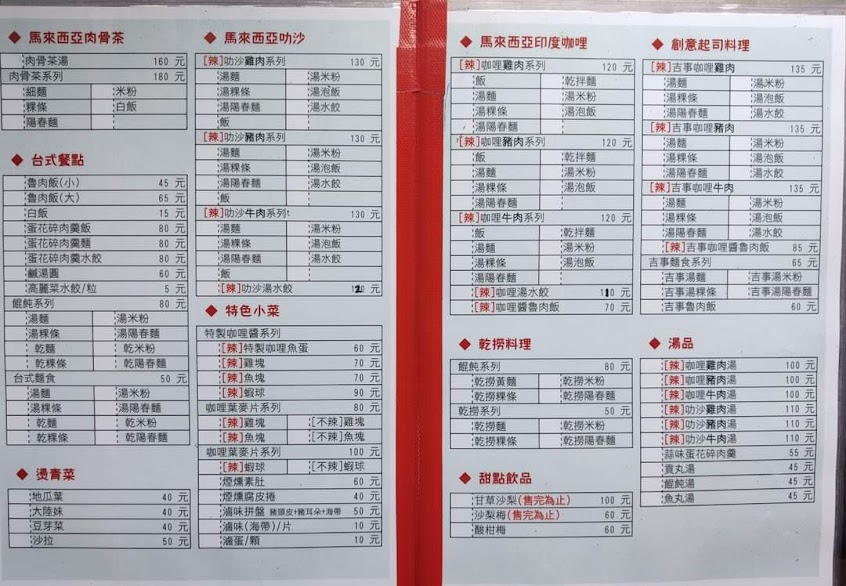 ◆ 馬來西亞肉骨茶
肉骨茶湯 160 元
肉骨茶系列 180 元
細麵 米粉
粿條 白飯
陽春麵
◆ 台式餐點
魯肉飯(小) 45 元
魯肉飯(大) 65 元
白飯 15 元
蛋花碎肉羹飯 80 元
蛋花碎肉羹麵 80 元
蛋花碎肉羹水餃 80 元
鹹湯圓 60 元
高麗菜水餃/粒 5 元
餛飩系列 80 元
湯麵 湯米粉
湯粿條 湯陽春麵
乾麵 乾米粉
乾粿條 乾陽春麵
台式麵食 50 元
湯麵 湯米粉
湯粿條 湯陽春麵
乾麵 乾米粉
乾粿條 乾陽春麵
◆ 燙青菜
地瓜葉 40 元
大陸妹 40 元
豆芽菜 40 元
沙拉 50 元
◆ 馬來西亞叻沙
[辣]叻沙雞肉系列 130 元
湯麵 湯米粉
湯粿條 湯泡飯
湯陽春麵 湯水餃
飯
[辣]叻沙豬肉系列 130 元
湯麵 湯米粉
湯粿條 湯泡飯
湯陽春麵 湯水餃
飯
[辣]叻沙牛肉系列 130 元
湯麵 湯米粉
湯粿條 湯泡飯
湯陽春麵 湯水餃
飯
[辣]叻沙湯水餃 120 元
◆ 特色小菜
特製咖哩醬系列
[辣]特製咖哩魚蛋 60 元
[辣]雞塊 70 元
[辣]魚塊 70 元
[辣]蝦球 90 元
咖哩葉麥片系列 80 元
[辣]雞塊 [不辣]雞塊
[辣]魚塊 [不辣]魚塊
咖哩葉麥片系列 100 元
[辣]蝦球 [不辣]蝦球
煙燻素肚 60 元
煙燻腐皮捲 40 元
滷味拼盤 豬頭皮+豬耳朵+海帶 50 元
滷味(海帶)/片 10 元
滷蛋/顆 10 元
◆ 馬來西亞印度咖哩
[辣]咖哩雞肉系列 120 元
飯 乾拌麵
湯麵 湯米粉
湯粿條 湯泡飯
湯陽春麵
[辣]咖哩豬肉系列 120 元
飯 乾拌麵
湯麵 湯米粉
湯粿條 湯泡飯
湯陽春麵
[辣]咖哩牛肉系列 120 元
飯 乾拌麵
湯麵 湯米粉
湯粿條 湯泡飯
湯陽春麵
[辣]咖哩湯水餃 110 元
[辣]咖哩醬魯肉飯 70 元
◆ 乾撈料理
餛飩系列 80 元
乾撈黃麵 乾撈米粉
乾撈粿條 乾撈陽春麵
乾撈系列 50 元
乾撈麵 乾撈米粉
乾撈粿條 乾撈陽春麵
◆ 甜點飲品
甘草沙梨(售完為止) 100 元
沙梨梅(售完為止) 60 元
酸柑梅 60 元
◆ 創意起司料理
[辣]吉事咖哩雞肉 135 元
湯麵 湯米粉
湯粿條 湯泡飯
湯陽春麵 湯水餃
[辣]吉事咖哩豬肉 135 元
湯麵 湯米粉
湯粿條 湯泡飯
湯陽春麵 湯水餃
[辣]吉事咖哩牛肉 135 元
湯麵 湯米粉
湯粿條 湯泡飯
湯陽春麵 湯水餃
[辣]吉事咖哩醬魯肉飯 85 元
吉事麵食系列 65 元
吉事湯麵 吉事湯米粉
吉事湯粿條 吉事湯陽春麵
吉事魯肉飯 60 元
◆ 湯品
[辣]咖哩雞肉湯 100 元
[辣]咖哩豬肉湯 100 元
[辣]咖哩牛肉湯 100 元
[辣]叻沙雞肉湯 110 元
[辣]叻沙豬肉湯 110 元
[辣]叻沙牛肉湯 110 元
蒜味蛋花碎肉羹 55 元
貢丸湯 45 元
餛飩湯 45 元
魚丸湯 45 元